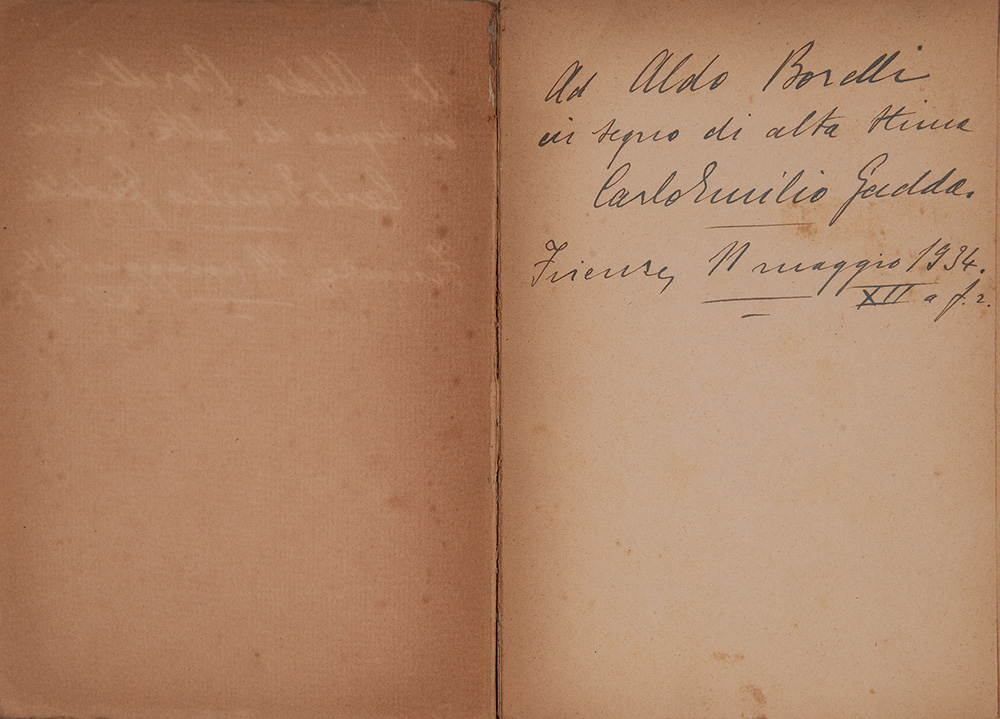 Ad Aldo Borelli
in segno di alta stima
Carlo Emilio Gadda.
Firenze, 11 maggio 1934.
XII a f. r.